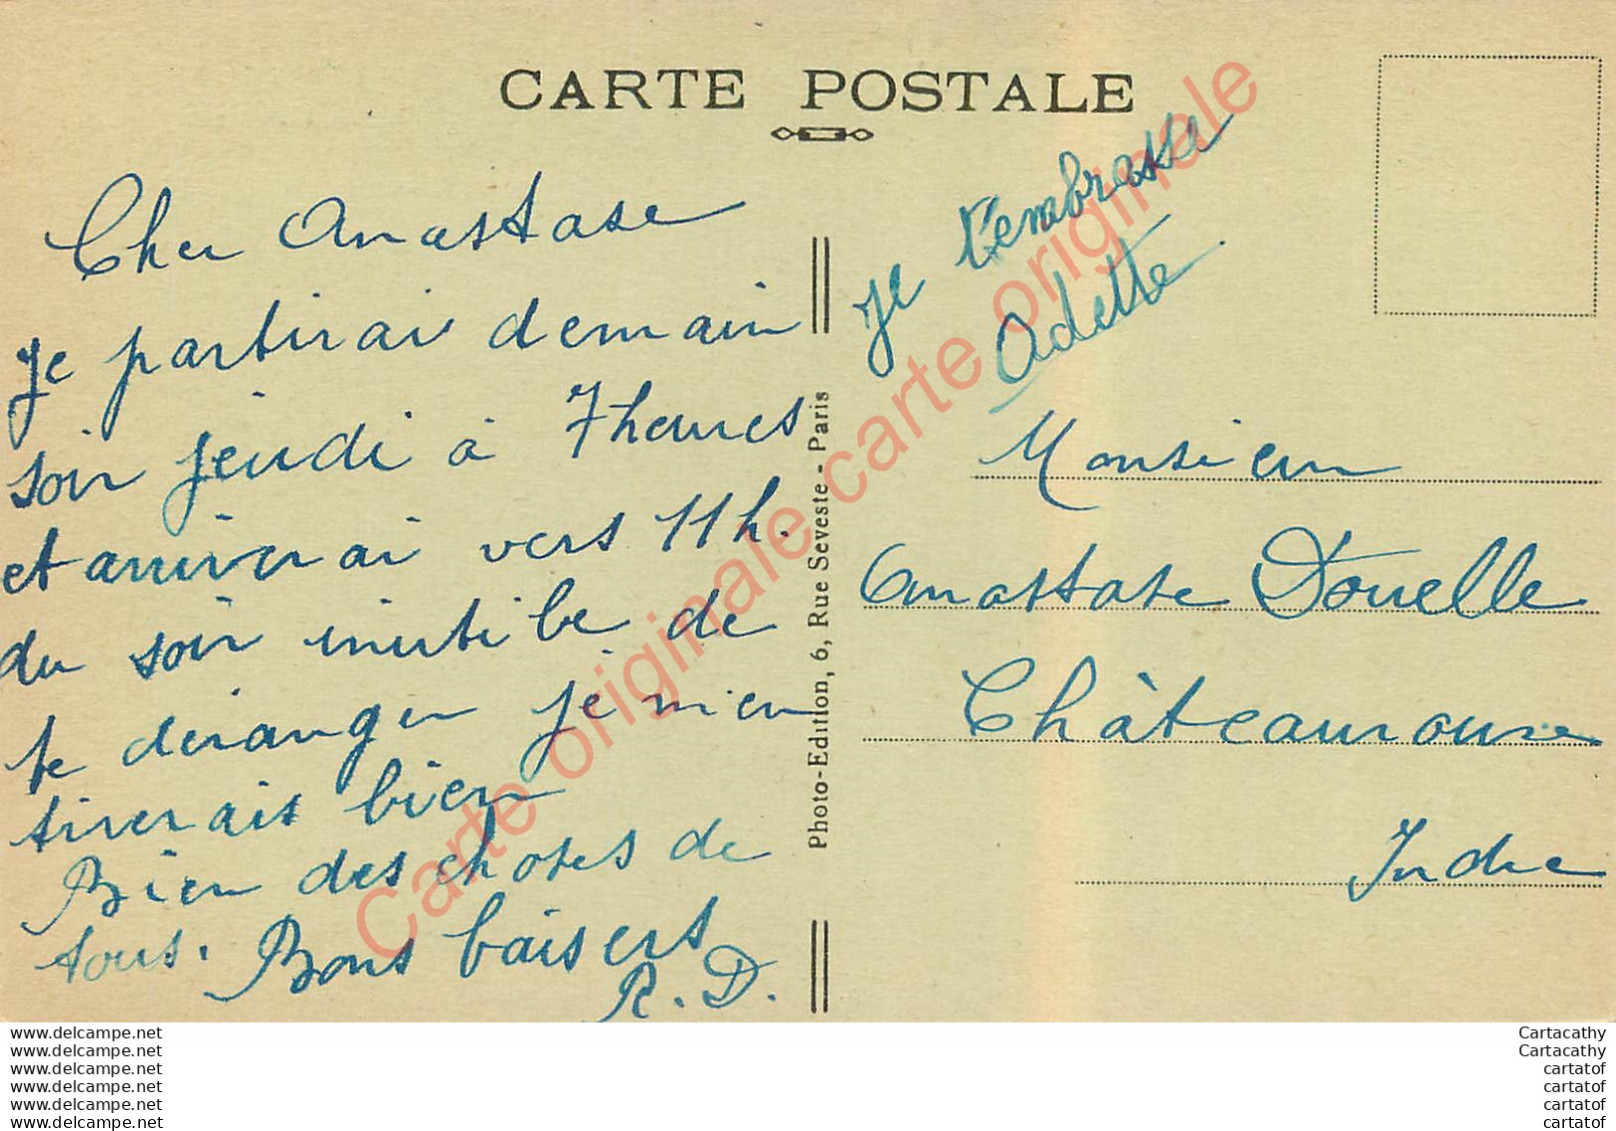 CARTE POSTALE
Cher Anastase
je partirai demain
soir jeudi à 7 heures
et arriverai vers 11 h.
du soir inutile de
te déranger je m'en
tirerais bien
Bien des choses de
tous. Bons baisers
R. D.
je t'embrasse
Odette
Photo-Edition, 6, Rue Seveste - Paris
Monsieur
Anastase Douelle
Châteauroux
Indre
Carte originale carte originale carte originale
www.delcampe.net
www.delcampe.net
www.delcampe.net
www.delcampe.net
www.delcampe.net
www.delcampe.net
Cartacathy
Cartacathy
cartatof
cartatof
cartatof
cartatof